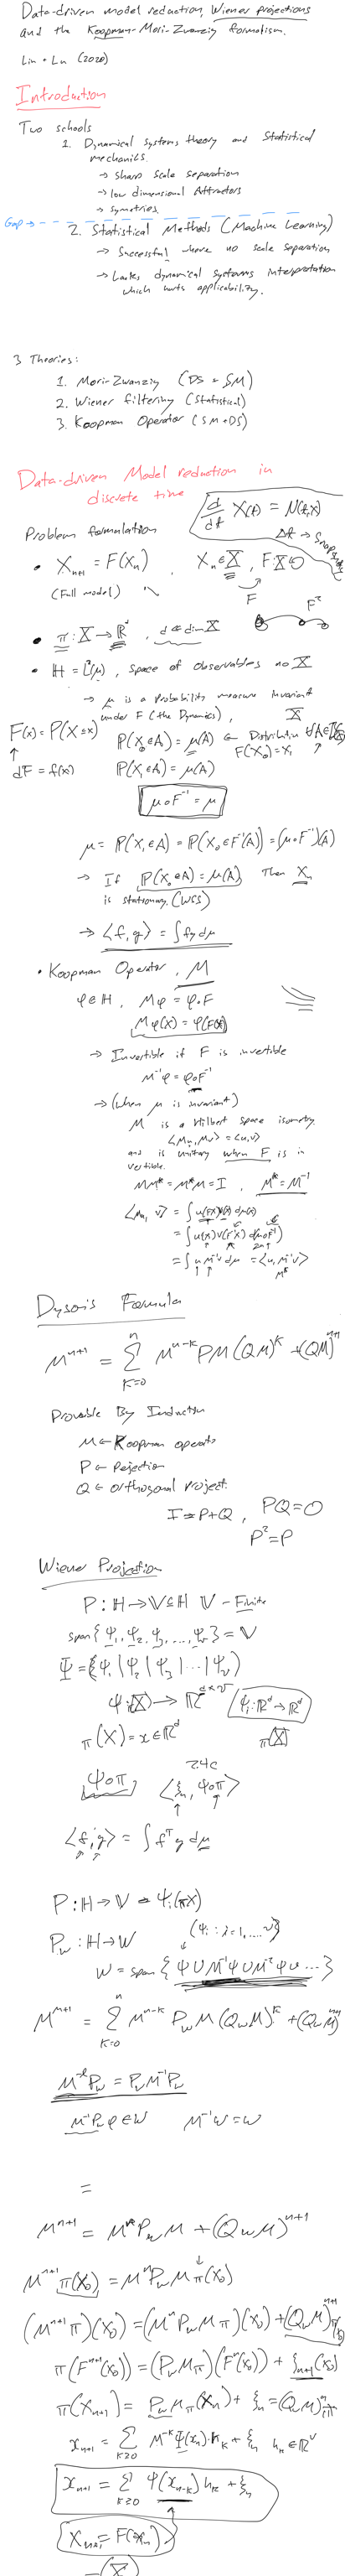 Data-driven model reduction, Wiener projections
and the Koopman-Mori-Zwanzig formalism.
Lin & Lu (2020)
Introduction
Two schools
1. Dynamical systems theory and Statistical
mechanics.
→ sharp scale separation
→ low dimensional Attractors
→ symetries
Gap →
2. Statistical Methods (Machine Learning)
→ Successful where no scale separation
→ Lacks dynamical systems interpretation
which hurts applicability.
3 Theories:
1. Mori-Zwanzig (DS & SM)
2. Wiener filtering (Statistical)
3. Koopman Operator (SM & DS)
Data-driven Model reduction in
discrete time
d/dt X(t) = N(t,X)
Δt →
Problem formulation
• X_{n+1} = F(X_n) , X_n ∈ 𝕏 , F: 𝕏 ↺
(Full model)
F F²
• π: 𝕏 → ℝ^d , d ≪ dim 𝕏
• ℍ = L²(μ) , space of observables on 𝕏
→ μ is a Probability measure invariant
under F (the Dynamics),
F(x) = P(X ≤ x)
dF = f(x)
ℙ(X_0 ∈ A) = μ(A) ← Distribution
F(X_0) = X_1
ℙ(X_1 ∈ A) = μ(A)
μ∘F⁻¹ = μ
μ = ℙ(X_1 ∈ A) = ℙ(X_0 ∈ F⁻¹(A)) = (μ∘F⁻¹)(A)
→ If ℙ(X_0 ∈ A) = μ(A), Then X_n
is stationary. (WSS)
→ ⟨f, g⟩ = ∫ fg dμ
• Koopman Operator, M
φ ∈ ℍ , Mφ = φ∘F
Mφ(X) = φ(F(X))
→ Invertible if F is invertible
M⁻¹φ = φ∘F⁻¹
→ (when μ is invariant)
M is a Hilbert space isometry.
⟨Mu, Mv⟩ = ⟨u, v⟩
and is unitary when F is in
vertible.
MM* = M*M = I , M* = M⁻¹
⟨Mu, v⟩ = ∫ u(F(X)) v(X) dμ(x)
= ∫ u(X) v(F⁻¹X) d(μ∘F⁻¹)
= ∫ u M⁻¹v dμ = ⟨u, M⁻¹v⟩
M*
Dyson's Formula
M^{n+1} = Σ_{k=0}^{n} M^{n-k} PM(QM)^k + (QM)^{n+1}
Provable By Induction
M ← Koopman operato
P ← Pojection
Q ← orthogonal project.
I = P+Q , PQ = 0
P² = P
Wiener Projection
P: ℍ → V ⊆ ℍ V - Finite
span{ψ_1, ψ_2, ψ_3, ..., ψ_ν} = V
Ψ = (ψ_1 | ψ_2 | ψ_3 | ... | ψ_ν)
ψ: π(𝕏) → ℝ^{d×ν} ψ_i: ℝ^d → ℝ^d
π(X) = x ∈ ℝ^d π(𝕏)
ψ∘π ⟨ξ_n, ψ∘π⟩
⟨f, g⟩ = ∫ fᵀg dμ
P: ℍ → V = ψ_i(πX)
P_w: ℍ → W {ψ_i : i = 1, ..., ν}
W = span{ψ ∪ M⁻¹ψ ∪ M⁻²ψ ∪ ...}
M^{n+1} = Σ_{k=0}^{n} M^{n-k} P_w M(Q_w M)^k + (Q_w M)^{n+1}
M⁻ᵏP_w = P_w M⁻¹P_w
M⁻¹P_w φ ∈ W M⁻¹W = W
=
M^{n+1} = M^n P_w M + (Q_w M)^{n+1}
M^{n+1} π(X_0) = M^n P_w M π(X_0)
(M^{n+1} π)(X_0) = (M^n P_w M π)(X_0) + (Q_w M)^{n+1} π(X_0)
π(F^{n+1}(X_0)) = (P_w M π)(F^n(X_0)) + ξ_{n+1}(X_0)
π(X_{n+1}) = P_w M π(X_n) + ξ_n = (Q_w M)^n π
x_{n+1} = Σ_{k≥0} M^{-k} Ψ(x_n)·h_k + ξ_n h_k ∈ ℝ^ν
x_{n+1} = Σ_{k≥0} ψ(x_{n-k}) h_k + ξ_n
X_{n+1} = F(X_n)